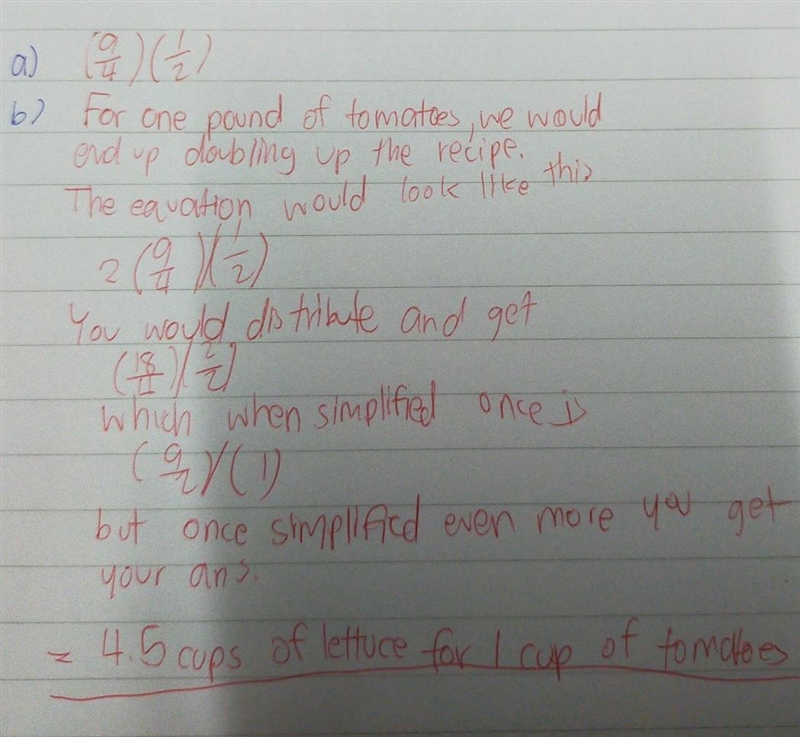 a) (9/4)(1/2)
b) For one pound of tomatoes, we would
end up doubling up the recipe.
The equation would look like this
2(9/4)(1/2)
You would distribute and get
(18/4)(2/2)
which when simplified once is
(9/2)(1)
but once simplified even more you get
your ans.
= 4.5 cups of lettuce for 1 cup of tomatoes